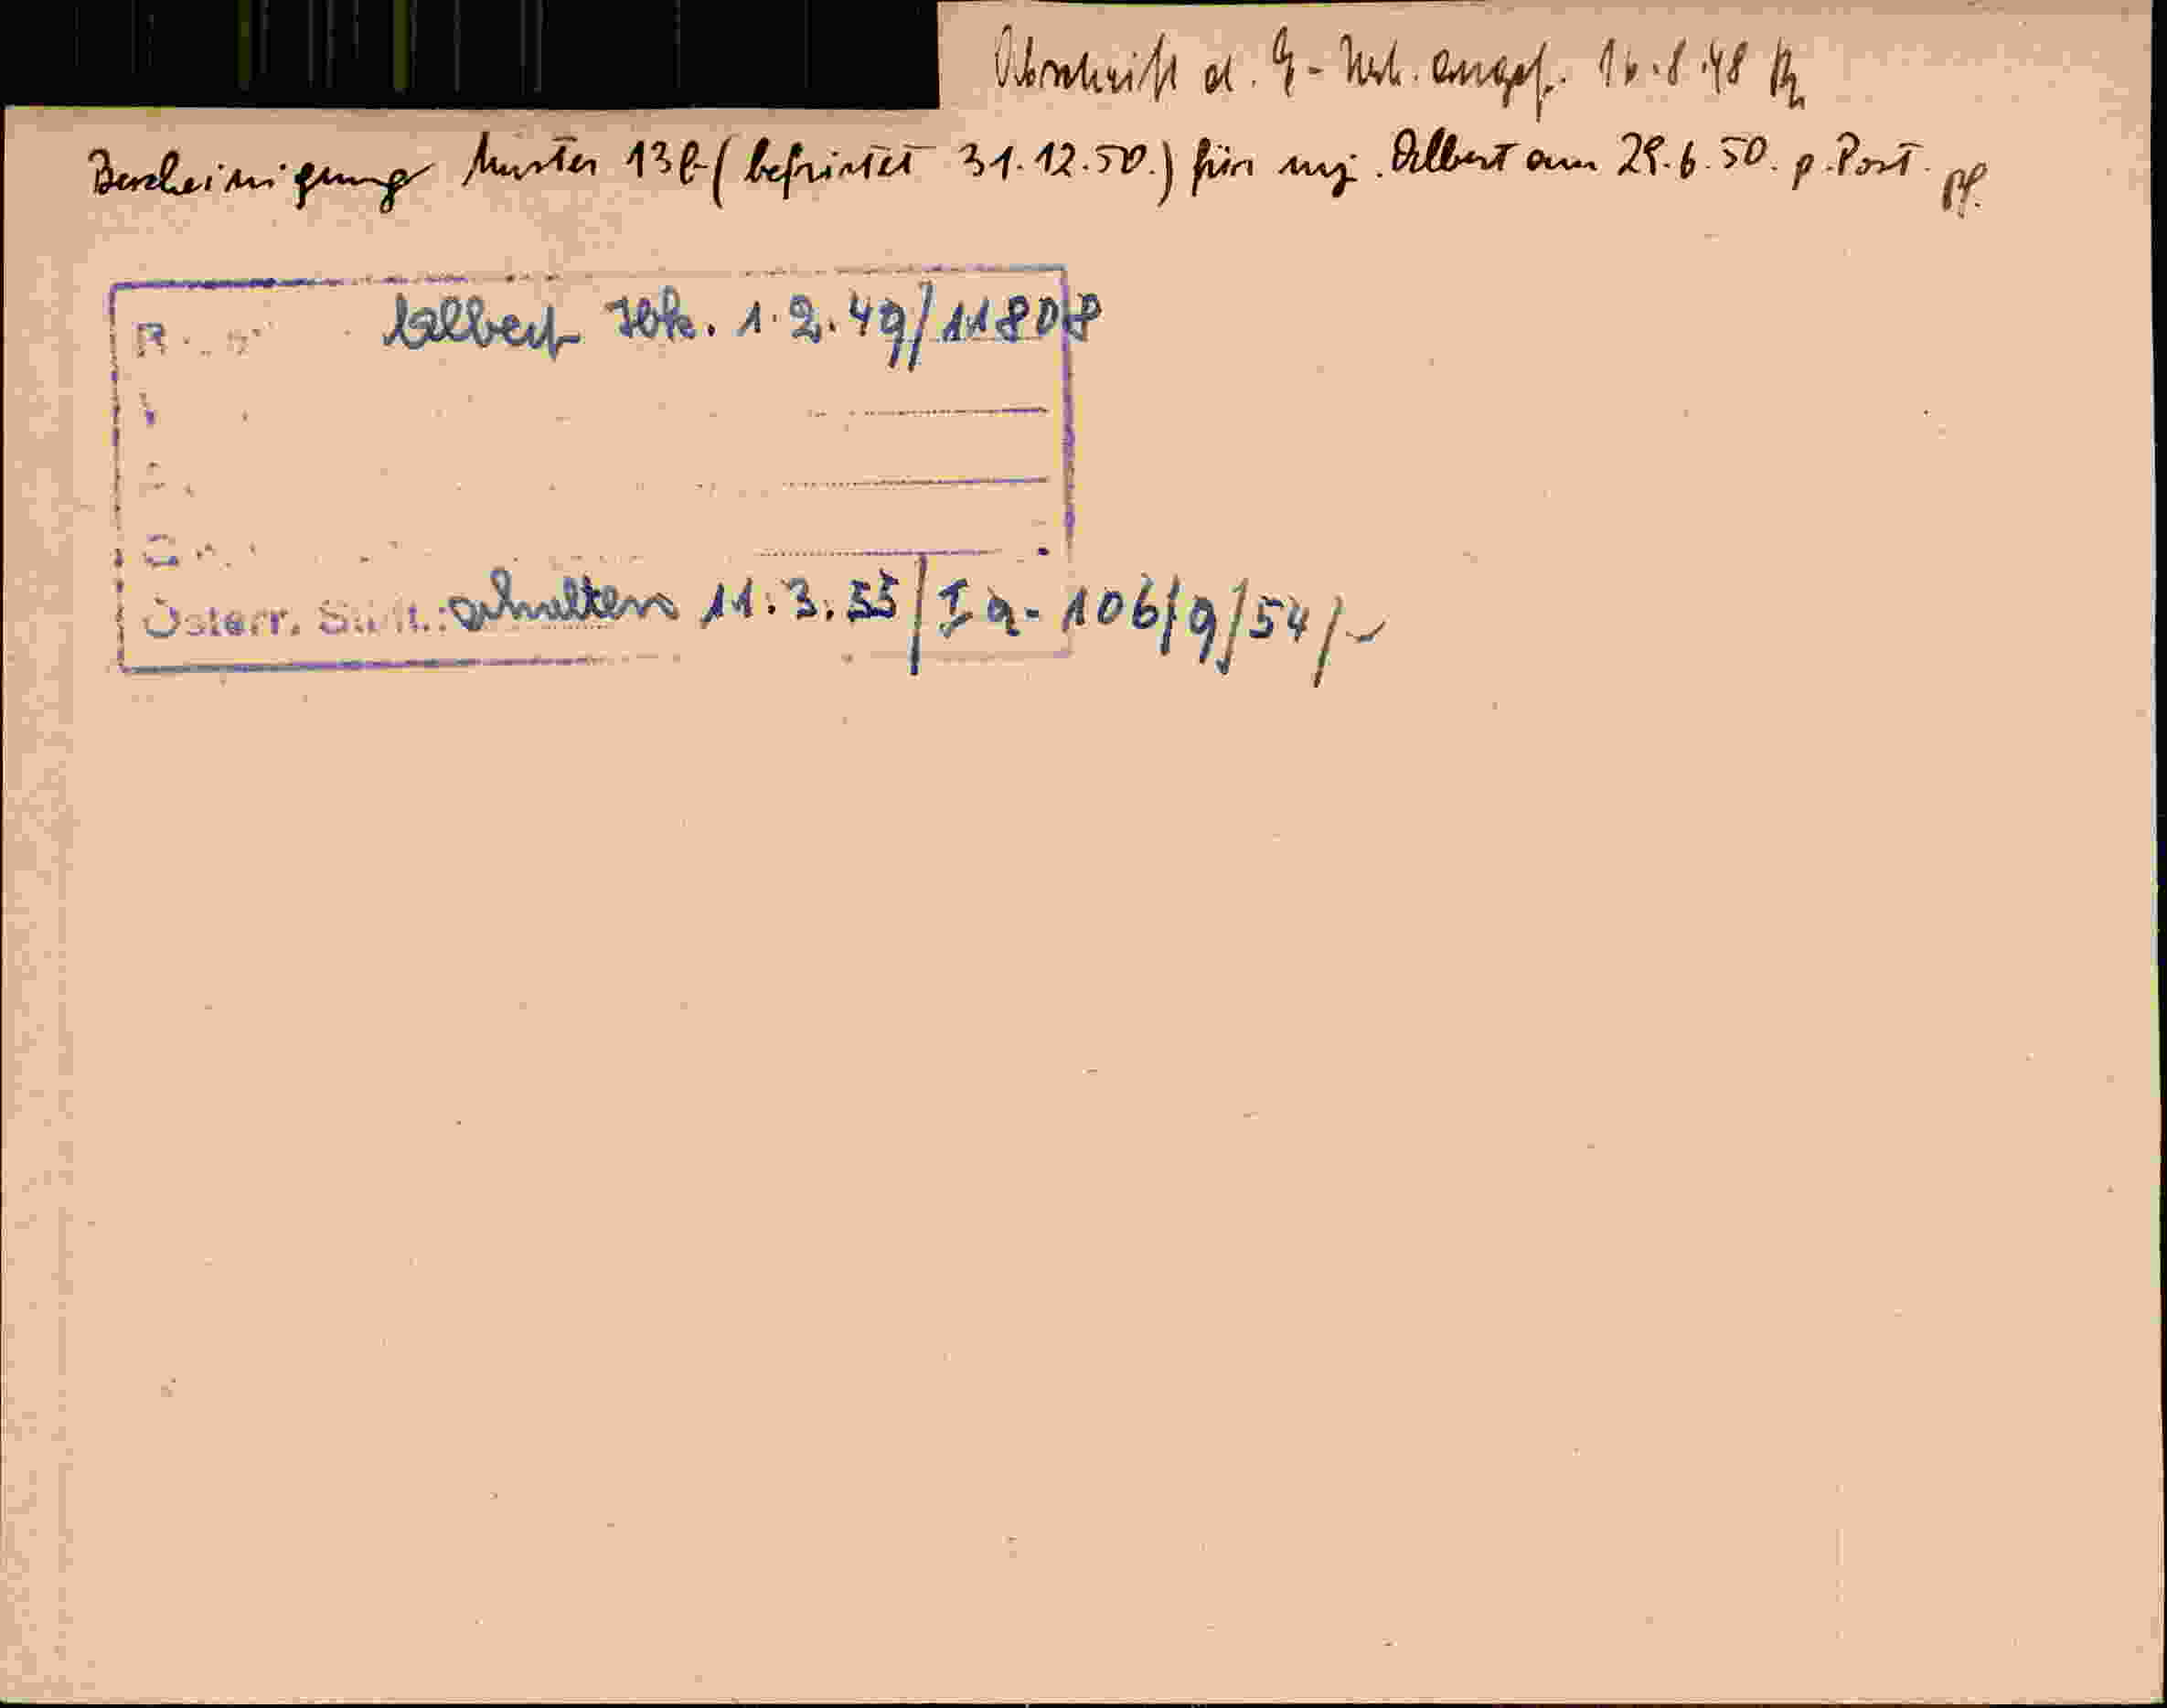 Abschrift d. G-Urk. angef. 16.8.48
Bescheinigung Muster 13b (befristet 31.12.50.) für mj. Albert am 29.6.50. p. Post.
Albert Ibk. 1.2.49/11808
Österr. Stbft.: erhalten 11.3.55/Ia-106/9/54/